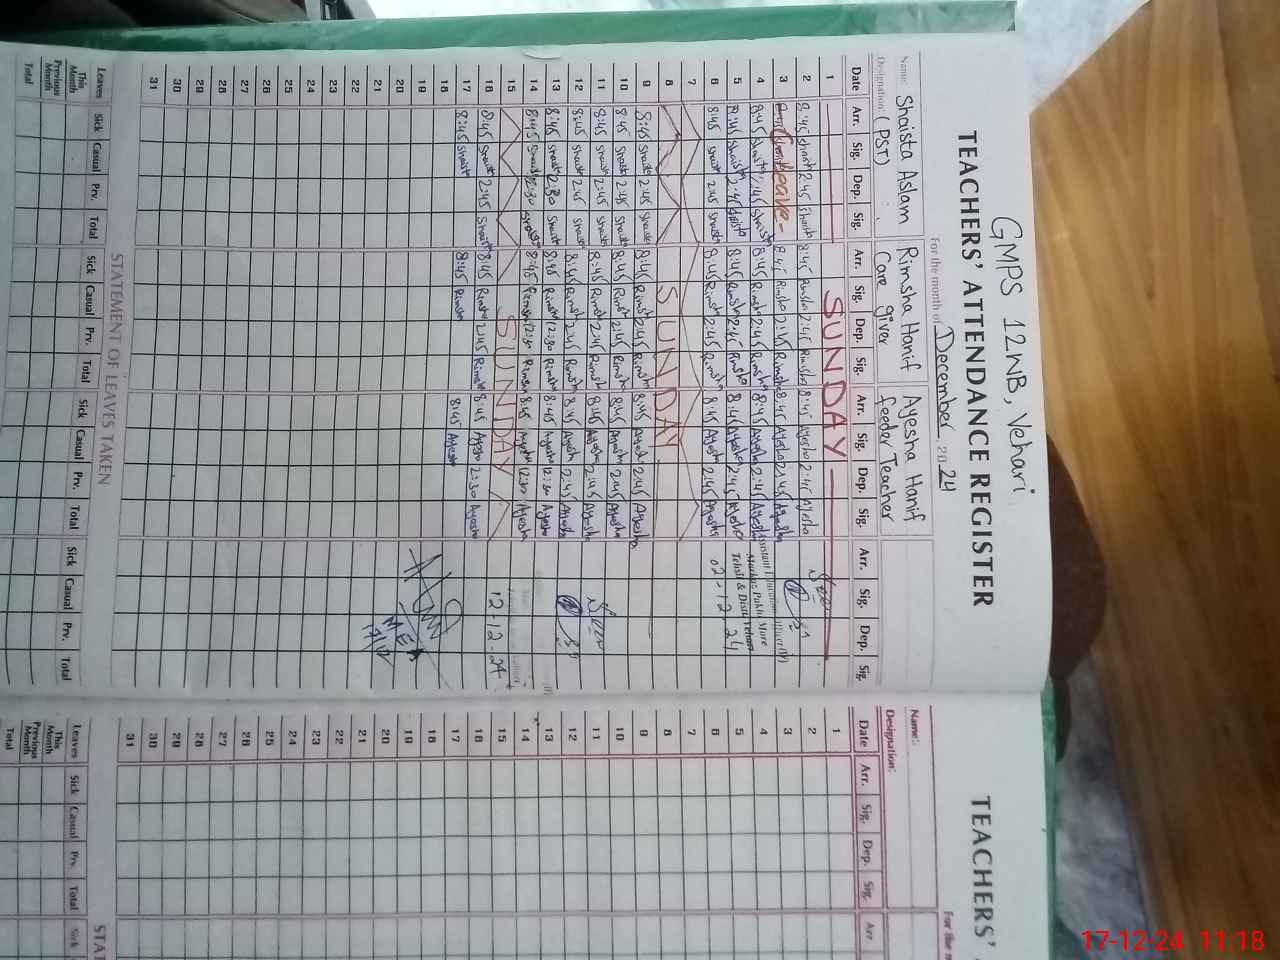 GMPS 12WB, Vehari
TEACHERS' ATTENDANCE REGISTER
For the month of December, 2024
Name: Shaista Aslam Rimsha Hanif Ayesha Hanif
Designation: (PST) Care giver feeder Teacher
Date Arr. Sig. Dep. Sig. Arr. Sig. Dep. Sig. Arr. Sig. Dep. Sig. Arr. Sig. Dep. Sig.
1 SUNDAY
2 8:45 2:45 8:45 Rimsha 2:45 Rimsha 8:45 Ayesha 2:45 Ayesha
3 leave Rimsha 2:45 Rimsha 8:45 Ayesha 2:45 Ayesha
4 8:45 Shaista 2:45 Shaista 8:45 Rimsha 2:45 Rimsha 8:45 Ayesha 2:45 Ayesha
5 8:45 Shaista 2:45 Shaista 8:45 Rimsha 2:45 Rimsha 8:45 Ayesha 2:45 Ayesha
6 8:45 Shaista 2:45 Shaista 8:45 Rimsha 2:45 Rimsha 8:45 Ayesha 2:45 Ayesha 02-12-24
7
8 SUNDAY
9 8:45 Shaista 2:45 Shaista 8:45 Rimsha 2:45 Rimsha 8:45 Ayesha 2:45 Ayesha
10 8:45 Shaista 2:45 Shaista 8:45 Rimsha 2:45 Rimsha 8:45 Ayesha 2:45 Ayesha
11 8:45 Shaista 2:45 Shaista 8:45 Rimsha 2:45 Rimsha 8:45 Ayesha 2:45 Ayesha
12 8:45 Shaista 2:45 Shaista 8:45 Rimsha 2:45 Rimsha 8:45 Ayesha 2:45 Ayesha
13 8:45 Shaista 12:30 Shaista 8:45 Rimsha 12:30 Rimsha 8:45 Ayesha 12:30 Ayesha
14 8:45 Shaista 12:30 Shaista 8:45 Rimsha 12:30 Rimsha 8:45 Ayesha 12:30 Ayesha
15 SUNDAY
16 8:45 Shaista 2:45 Shaista 8:45 Rimsha 2:45 Rimsha 8:45 Ayesha 2:30 Ayesha 12-12-24
17 8:45 Shaista 8:45 Rimsha 8:45 Ayesha
18
19 MEA
20 17/12
21
22
23
24
25
26
27
28
29
30
31
Leaves Sick Casual Prv. Total Sick Casual Prv. Total Sick Casual Prv. Total Sick Casual Prv. Total
This Month
Previous Month
Total
STATEMENT OF LEAVES TAKEN
TEACHERS'
For the m
Name:
Designation:
Date Arr. Sig. Dep. Sig. Arr.
1
2
3
4
5
6
7
8
9
10
11
12
13
14
15
16
17
18
19
20
21
22
23
24
25
26
27
28
29
30
31
Leaves Sick Casual Prv. Total Sick
This Month
Previous Month
Total
STA
17-12-24 11:18